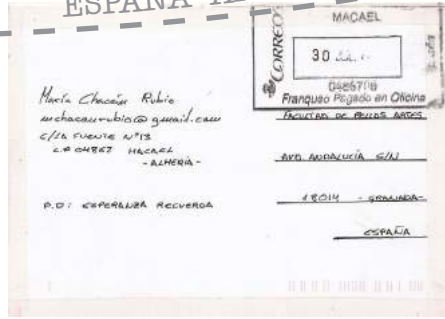 ESPAÑA
CORREOS
MACAEL
30
Franqueo Pagado en Oficina
María Chacón Rubio
mchaconrubio@gmail.com
C/LA FUENTE Nº13
C.P 04867 MACAEL
- ALMERÍA -
P.D: ESPERANZA RECUERDA
FACULTAD DE BELLAS ARTES
AVD. ANDALUCÍA S/N
18014 - GRANADA-
ESPAÑA